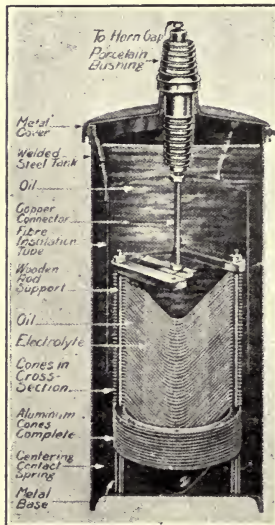 To Horn Gap
Porcelain
Bushing
Metal
Cover
Welded
Steel Tank
Oil
Copper
Connector
Fibre
Insulation
Tube
Wooden
Rod
Support
Oil
Electrolyte
Cones in
Cross-
Section
Aluminium
Cones
Complete
Centering
Contact
Spring
Metal
Base